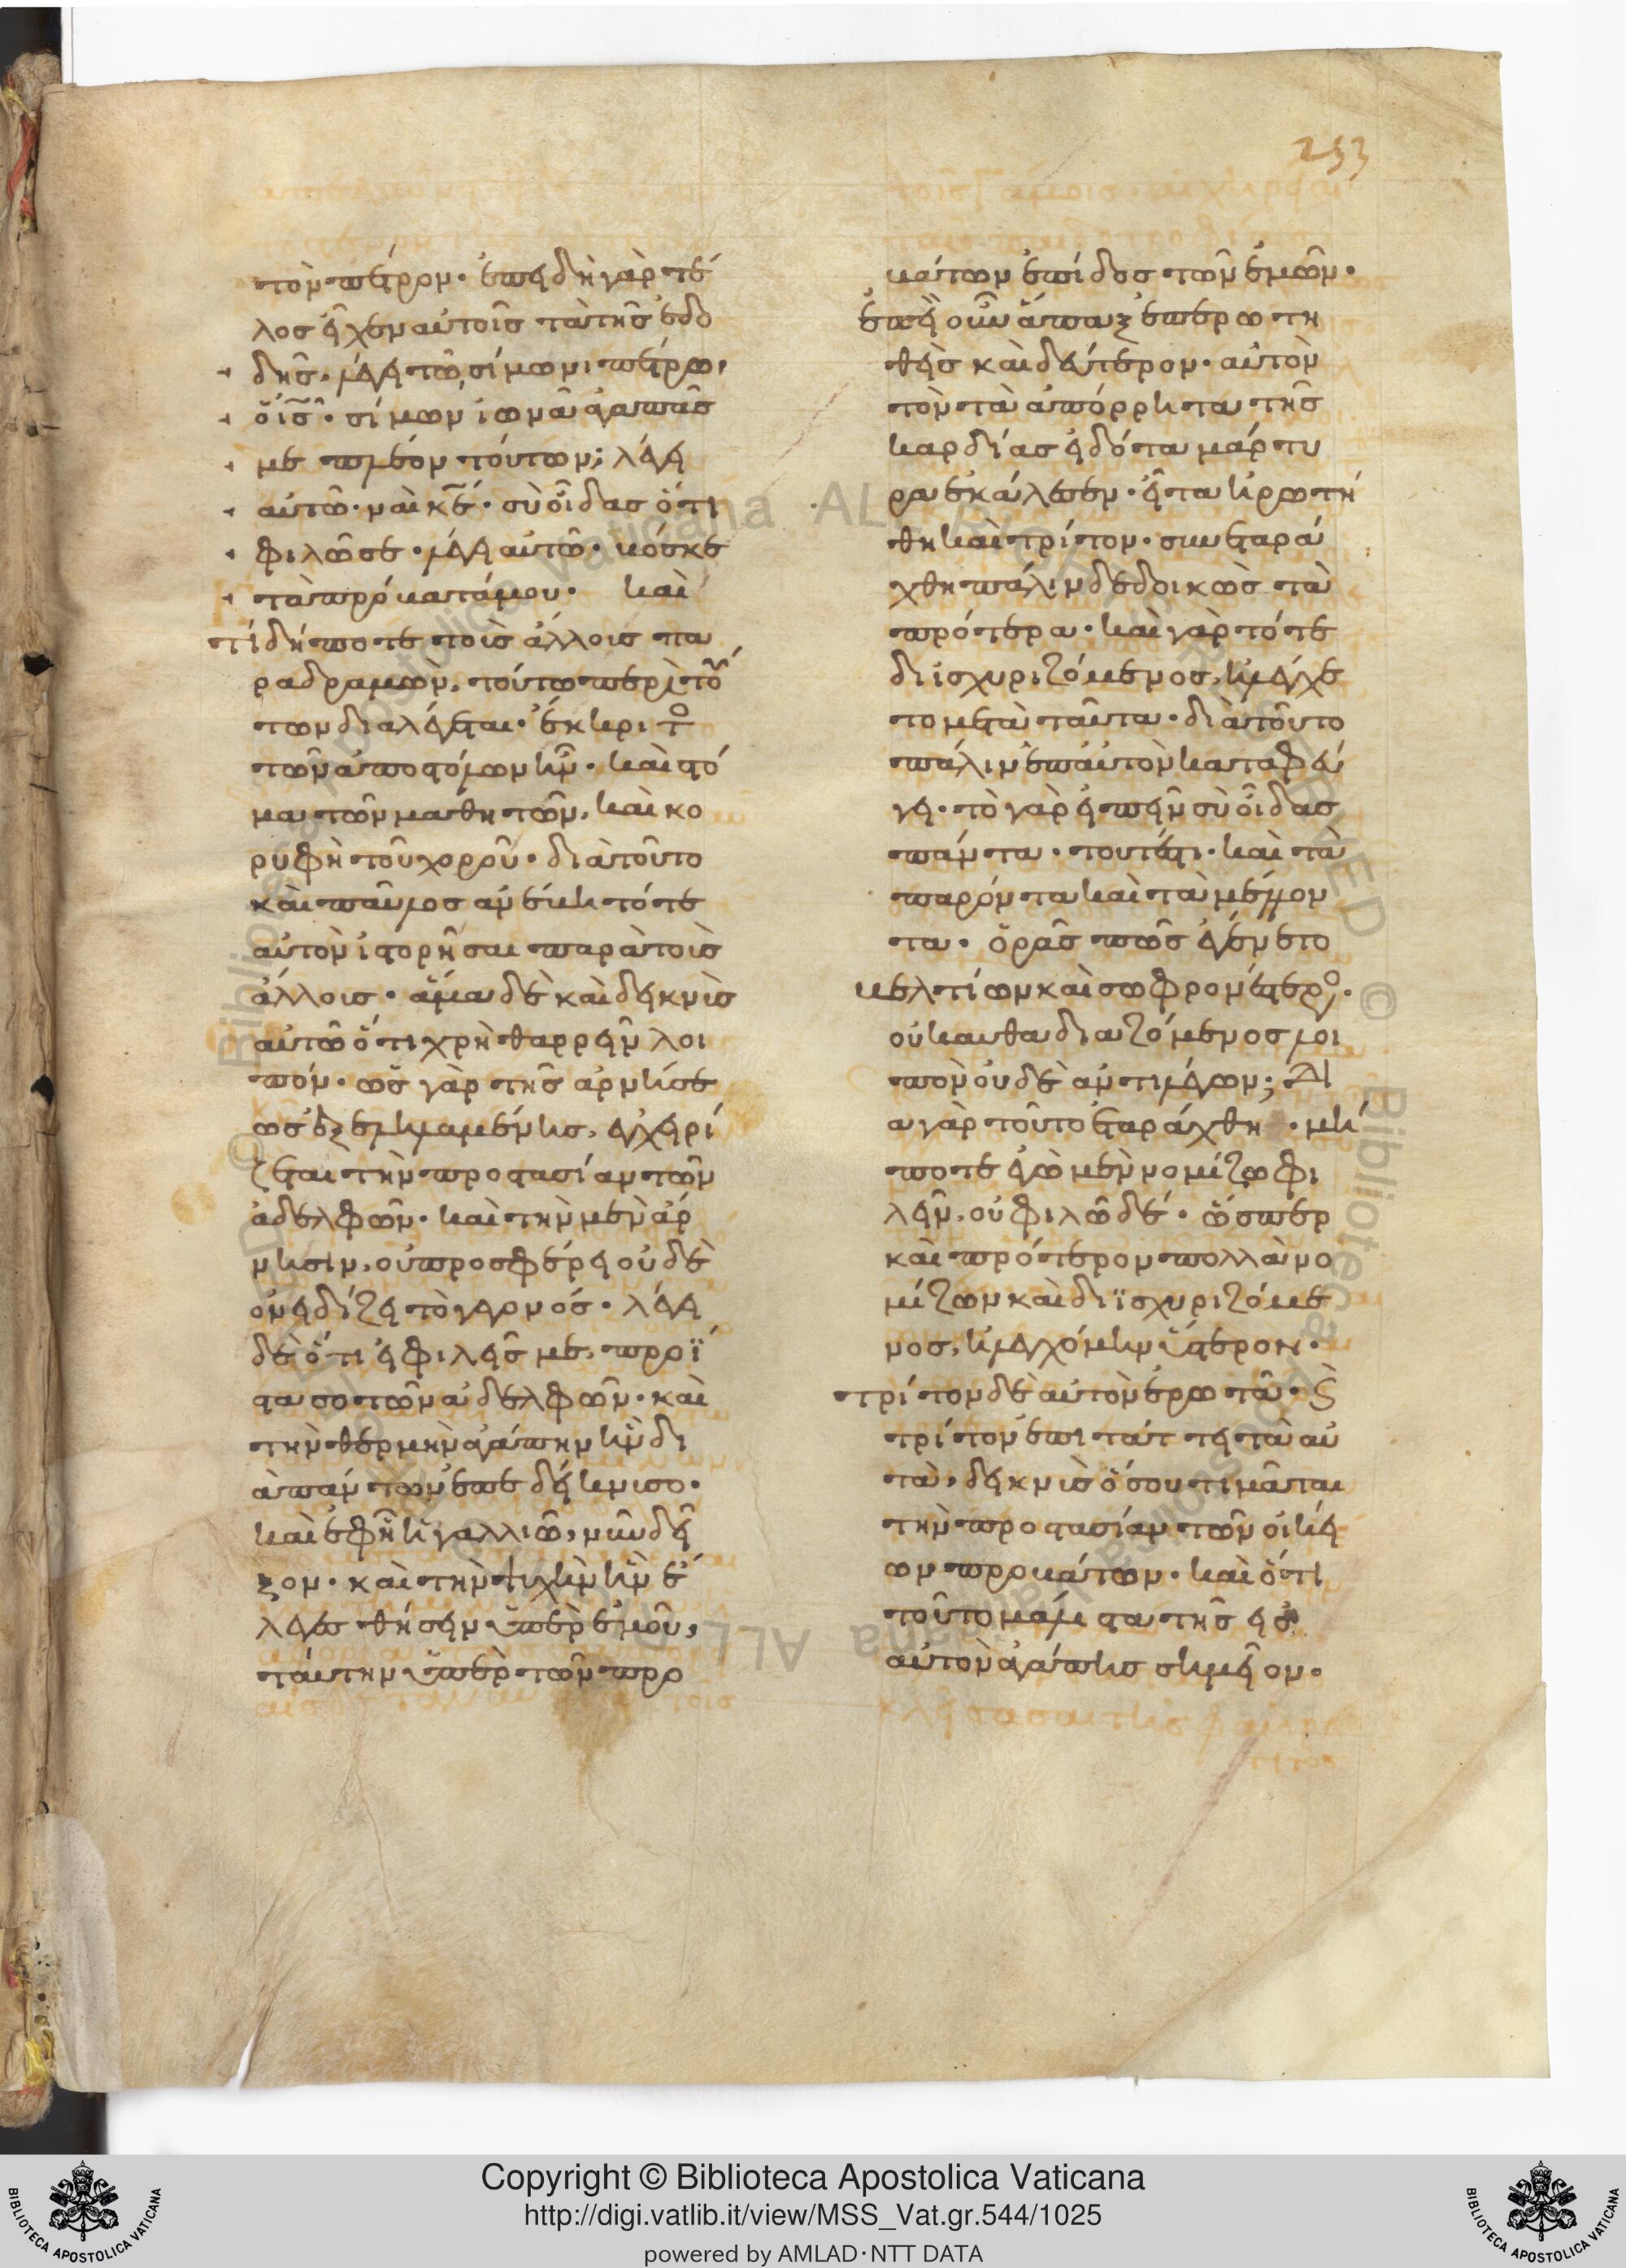 253
τὸν πέτρον· ἐπειδὴ γὰρ τέ
λος εἶχεν αὐτοῖς τὰ τῆς ἐδω
δῆς· λέγει τῶ σίμωνι πέτρω,
ὁ ις̅· σίμων ἰωνᾶ ἀγαπᾶς
με πλέον τούτων; λέγει
αὐτῶ· ναὶ κε̅· σὺ οἶδας ὅτι
φιλῶ σε· λέγει αὐτῶ· βόσκε
τὰ πρόβατά μου· καὶ
τί δήποτε τοὺς ἄλλους πα
ραδραμὼν, τούτω περὶ τού
των διαλέγεται· ἔκκριτο
τῶν ἀποστόλων ἦν· καὶ στό
μα τῶν μαθητῶν, καὶ κο
ρυφὴ τοῦ χοροῦ· διὰ τοῦτο
καὶ παῦλος ἀνέβη τότε
αὐτὸν ἱστορῆσαι παρὰ τοὺς
ἄλλους· ἅμα δὲ καὶ δεικνὺς
αὐτῶ ὅτι χρὴ θαρρεῖν λοι
πόν· ὡς γὰρ τῆς ἀρνήσε
ως ἐξεληλαμένης, ἐγχειρί
ζεται τὴν προστασίαν τῶν
ἀδελφῶν· καὶ τὴν μὲν ἄρ
νησιν, οὐ προσφέρει οὐδὲ
ὀνειδίζει τὸ γεγονός· λέγει
δὲ ὅτι εἰ φιλεῖς με, προΐ
στασο τῶν ἀδελφῶν· καὶ
τὴν θερμὴν ἀγάπην ἣν δι
ὰ πάντων ἐπεδείκνυσο·
καὶ ἐφ ἧ ἠγαλλιῶ, νῦν δεῖ
ξον· καὶ τὴν ψυχὴν ἣν ἔ
λεγες θήσειν ὑπὲρ ἐμοῦ,
ταύτην ὑπὲρ τῶν προ
βάτων ἐπίδος τῶν ἐμῶν·
ἐπεὶ οὖν ἅπαξ ἐπερωτη
θεὶς καὶ δεύτερον· αὐτὸν
τὸν τὰ ἀπόρρητα τῆς
καρδίας εἰδότα μάρτυ
ρα ἐκάλεσεν· εἶτα ἠρωτή
θη καὶ τρίτον· συνεταρά
χθη πάλιν δεδοικὼς τὰ
πρότερα· καὶ γὰρ τότε
διϊσχυριζόμενος, ἠλέγχε
το μετὰ ταῦτα· διὰ τοῦτο
πάλιν ἐπ αὐτὸν καταφεύ
γει· τὸ γὰρ εἰπεῖν σὺ οἶδας
πάντα· τουτέστι· καὶ τὰ
παρόντα καὶ τὰ μέλλον
τα· ὁρᾶς πῶς ἐγένετο
βελτίων καὶ σωφρονέστερος·
οὐκ αυθαδιαζόμενος λοι
πὸν οὐδὲ ἀντιλέγων; Δι
α γὰρ τοῦτο ἐταράχθη· μή
ποτε ἐγὼ μὲν νομίζω φι
λεῖν, οὐ φιλῶ δέ· ὥσπερ
καὶ πρότερον πολλὰ νο
μίζων καὶ διϊσχυριζόμε
νος, ἠλεγχόμην ὕστερον·
τρίτον δὲ αὐτὸν ἐρωτᾶ· Ϛ
τρίτον ἐπιτάττει τὰ αὐ
τὰ, δεικνὺς ὅσου τιμᾶται
τὴν προστασίαν τῶν οἰκεί
ων προβάτων· καὶ ὅτι
τοῦτο μάλιστα τῆς εἰς
αὐτὸν ἀγάπης σημεῖον·
Copyright © Biblioteca Apostolica Vaticana
http://digi.vatlib.it/view/MSS_Vat.gr.544/1025
powered by AMLAD·NTT DATA